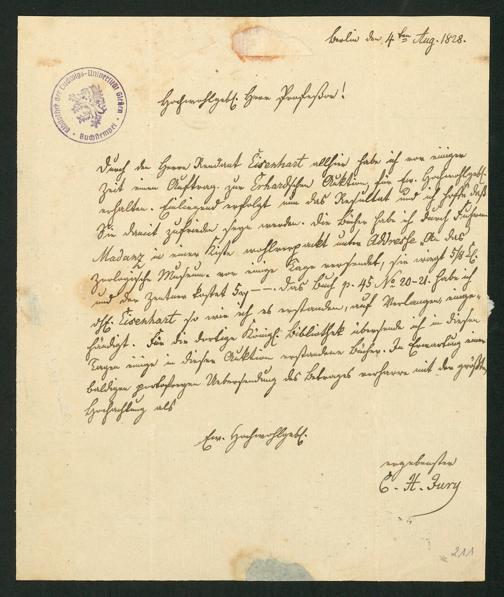 Berlin den 4ten Aug. 1828.
Bibliothek der Ludwigs-Universität Gießen
Buchstempel
Hochwohlgeb. Herr Professor!
Durch den Herrn Rendant Eisenhart allhier habe ich vor einiger
Zeit einen Auftrag zur Erhardschen Auktion für Ew. Hochwohlgeb.
erhalten. Einliegend erfolgt nun das Resultat und ich hoffe daß
Sie damit zufrieden seyn werden. Die Bücher habe ich durch Fuhrm.
in einer Kiste wohlverpackt unter Addresse An das
Zoologische Museum vor einige Tage versendet, sie wiegt
und der Zentner kostet Das Buch p. 45 No 20-21. habe ich
dH. Eisenhart so wie ich es erstanden, auf Verlangen, einge-
händigt. Für die dortige Königl. Bibliothek übersende ich in diesen
Tagen einige in dieser Auktion erstandene Bücher. In Erwartung einer
baldigen portofreyen Uebersendung des Betrages verharre mit der größten
Hochachtung als
Ew. Hochwohlgeb.
ergebenster
C. H. Jury
211